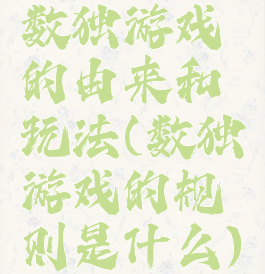 数独游戏
的由来和
玩法(数独
游戏的规
则是什么)